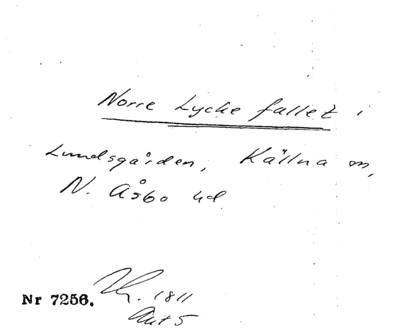 Norre Lycke fallet i
Lundsgården, Källna sn,
N. Åsbo hd.
Nr 7256. 1811
Akt 5